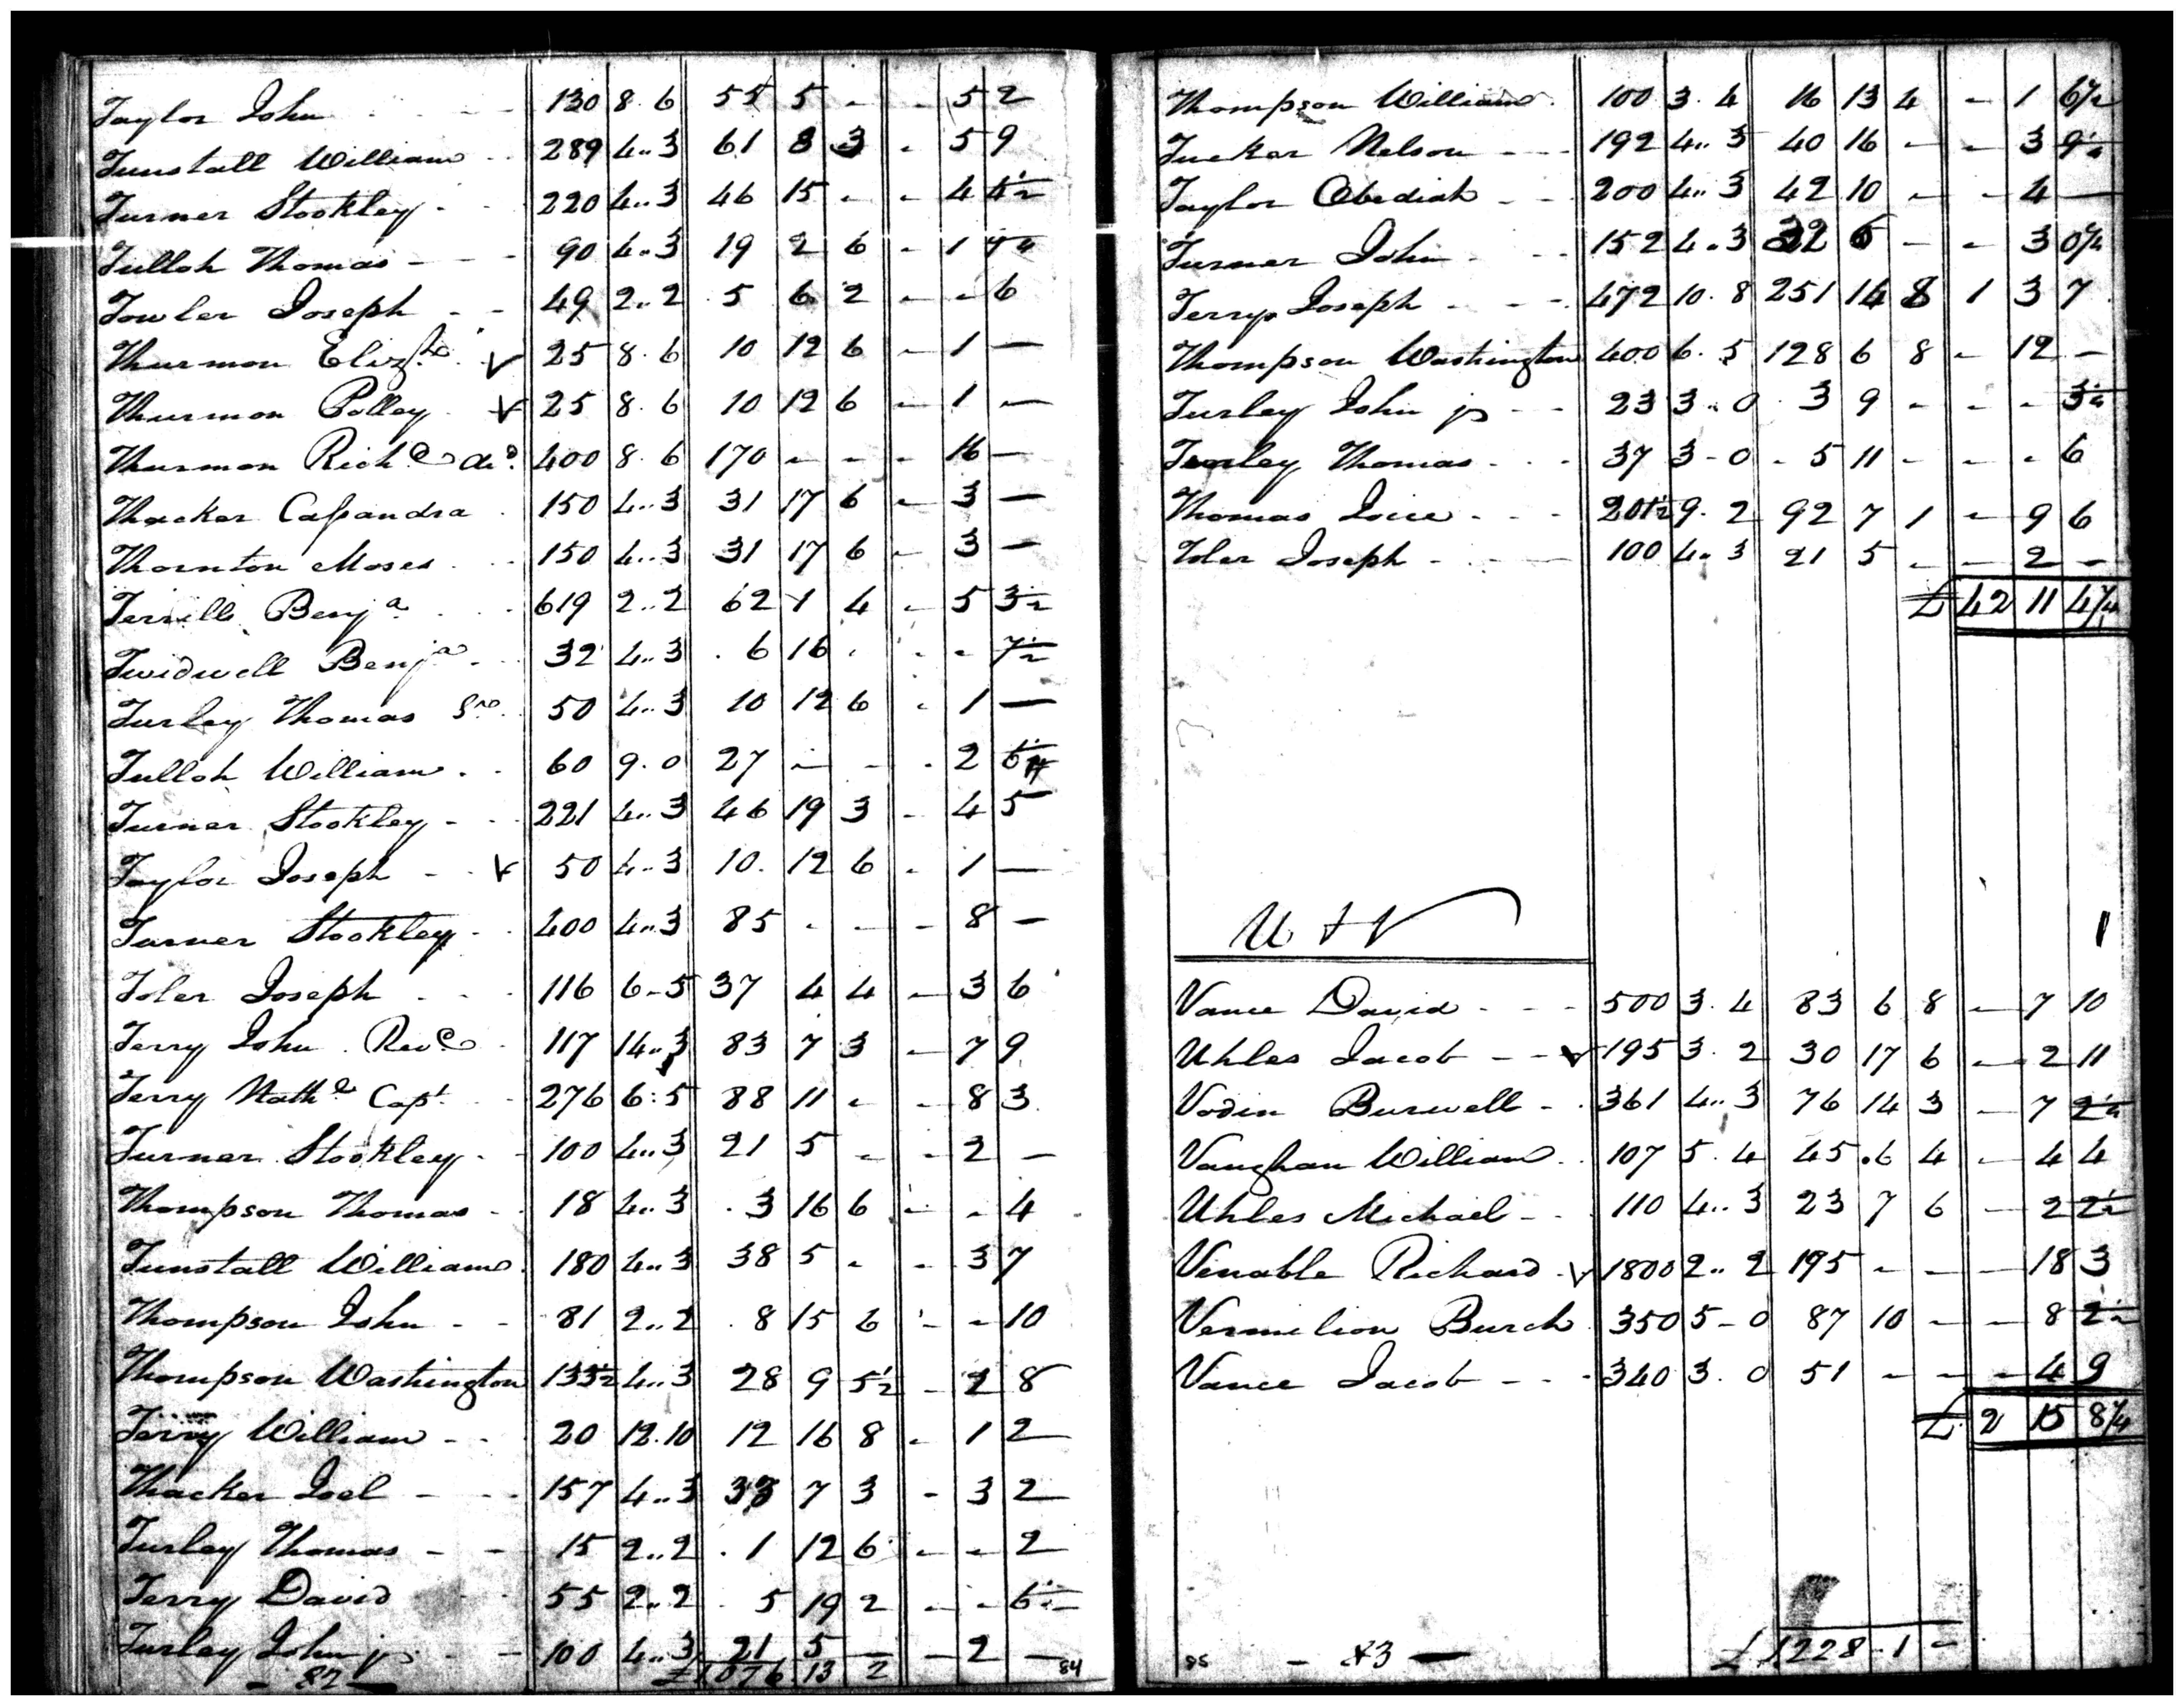 Taylor John - - - 130 8.6 55 5 - - 5 2
Tunstall William - - 289 4..3 61 8 3 - 5 9
Turner Stookley - - 220 4..3 46 15 - - 4 4½
Tulloh Thomas - - - 90 4..3 19 2 6 - 1
Towler Joseph - - 49 2..2 5 6 2 - - 6
Thurmon Elizth. V 25 8.6 10 12 6 - 1 -
Thurmon Polley V 25 8.6 10 12 6 - 1 -
Thurmon Richd. 400 8.6 170 - - - 16 -
Thacker Cassandra 150 4..3 31 17 6 - 3 -
Thornton Moses - - 150 4..3 31 17 6 - 3 -
Terrill Benja - - 619 2..2 62 1 4 - 5 3½
Twidwell Benja - - 32 4..3 6 16 - - - 7½
Turley Thomas Snr. 50 4..3 10 12 6 - 1 -
Tulloh William - - 60 9.0 27 - - - 2
Turner Stookley - - 221 4..3 46 19 3 - 4 5
Taylor Joseph - - V 50 4..3 10 12 6 - 1 -
Turner Stookley - - 400 4..3 85 - - - 8 -
Toler Joseph - - - 116 6-5 37 4 4 - 3 6
Terry John Revd. 117 14..3 83 7 3 - 7 9
Terry Nathl. Capt. 276 6:5 88 11 - - 8 3
Turner Stookley - - 100 4..3 21 5 - - 2 -
Thompson Thomas - 18 4..3 3 16 6 - - 4
Tunstall William 180 4..3 38 5 - - 3 7
Thompson John - - 81 2..2 8 15 6 - - 10
Thompson Washington 133½ 4..3 28 9 5½ - 2 8
Terry William - - 20 12.10 12 16 8 - 1 2
Thacker Joel - - - 157 4..3 33 7 3 - 3 2
Turley Thomas - - 15 2..2 1 12 6 - - 2
Terry David - - 55 2..2 5 19 2 - - 6½
Turley John jr - - 100 4..3 21 5 - - 2 -
- 82 - £1076 13 2 84
Thompson William 100 3.4 16 13 4 - 1 6½
Tucker Nelson - - - 192 4..3 40 16 - - 3 9¼
Taylor Obediah - - 200 4..3 42 10 - - 4 -
Turner John - - - 152 4.3 32 6 - - 3 0¼
Terry Joseph - - - 472 10.8 251 14 8 1 3 7
Thompson Washington 400 6.5 128 6 8 - 12 -
Turley John jr - - 23 3..0 3 9 - - - 3¼
Turley Thomas - - - 37 3-0 5 11 - - - 6
Thomas Joice - - - 201½ 9.2 92 7 1 - 9 6
Toler Joseph - - - 100 4..3 21 5 - - 2 -
£ 42 11 4¼
U & V
Vance David - - - 500 3.4 83 6 8 - 7 10
Uhles Jacob - - V 195 3.2 30 17 6 - 2 11
Voden Burwell - - 361 4..3 76 14 3 - 7 2¼
Vaughan William 107 5.4 45 6 4 - 4 4
Uhles Michael - - 110 4..3 23 7 6 - 2 2½
Venable Richard V 1800 2..2 195 - - - 18 3
Vermilion Burch 350 5-0 87 10 - - 8 2½
Vance Jacob - - - 340 3.0 51 - - - 4 9
£ 2 15 8¼
85 - 83 - £1228-1-